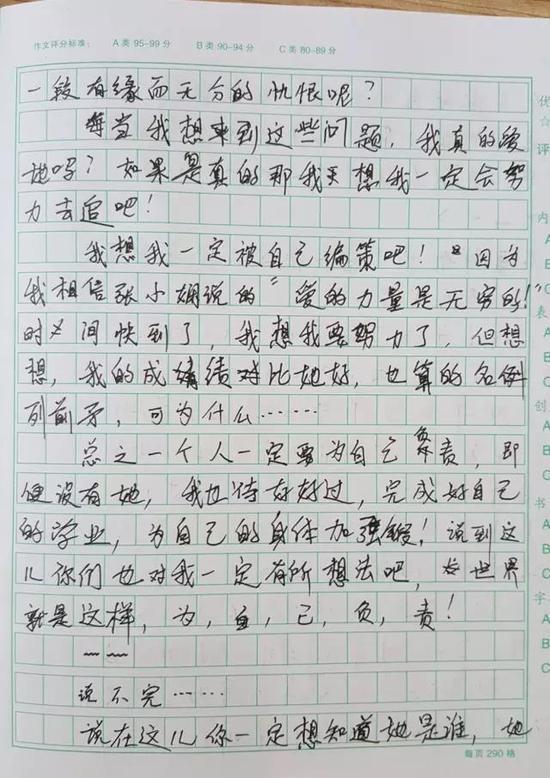 作文评分标准： A类 95-99分 B类 90-94分 C类 80-89分
一段有缘而无分的仇恨呢？
每当我想来到这些问题，我真的爱
她吗？如果是真的那我天想我一定会努
力去追吧！
我想我一定被自己编策吧！“因为
我相信张小娴说的“爱的力量是无穷的！”
时间快到了，我想我要努力了，但想
想，我的成绩对比她好，也算的名例
列前矛，可为什么……
总之一个人一定要为自己负责，即
便没有她，我也待好好过，完成好自己
的学业，为自己的身体加强锻！说到这
儿你们也对我一定有所想法吧，世界
就是这样，为，自，己，负，责！
~~
说不完……
说在这儿你一定想知道她是谁，她
每页 290 格
优
☆
评
内
A
B
C
表
A
B
C
创
A
B
C
书
A
字
A
B
C